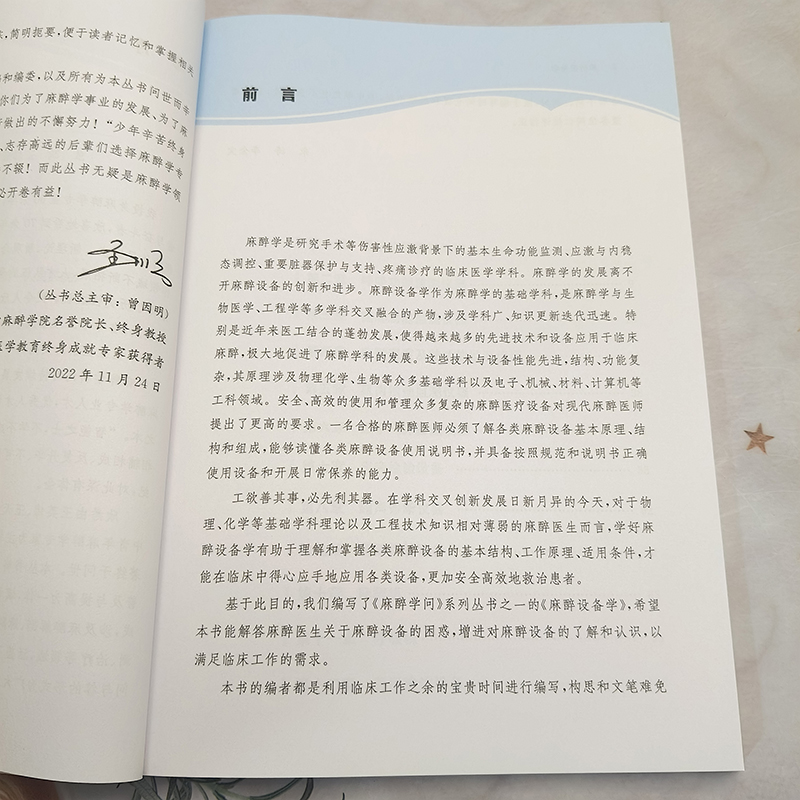 简明扼要,便于读者记忆和掌握相关
和编委,以及所有为本丛书问世而辛
你们为了麻醉学事业的发展、为了麻
做出的不懈努力!“少年辛苦终身
、志存高远的后辈们选择麻醉学专
不辍!而此丛书无疑是麻醉学领
必开卷有益!
(丛书总主审:曾因明)
麻醉学院名誉院长、终身教授
医学教育终身成就专家获得者
2022年11月24日
前 言
麻醉学是研究手术等伤害性应激背景下的基本生命功能监测、应激与内稳
态调控、重要脏器保护与支持、疼痛诊疗的临床医学学科。麻醉学的发展离不
开麻醉设备的创新和进步。麻醉设备学作为麻醉学的基础学科,是麻醉学与生
物医学、工程学等多学科交叉融合的产物,涉及学科广、知识更新迭代迅速。特
别是近年来医工结合的蓬勃发展,使得越来越多的先进技术和设备应用于临床
麻醉,极大地促进了麻醉学科的发展。这些技术与设备性能先进,结构、功能复
杂,其原理涉及物理化学、生物等众多基础学科以及电子、机械、材料、计算机等
工科领域。安全、高效的使用和管理众多复杂的麻醉医疗设备对现代麻醉医师
提出了更高的要求。一名合格的麻醉医师必须了解各类麻醉设备基本原理、结
构和组成,能够读懂各类麻醉设备使用说明书,并具备按照规范和说明书正确
使用设备和开展日常保养的能力。
工欲善其事,必先利其器。在学科交叉创新发展日新月异的今天,对于物
理、化学等基础学科理论以及工程技术知识相对薄弱的麻醉医生而言,学好麻
醉设备学有助于理解和掌握各类麻醉设备的基本结构、工作原理、适用条件,才
能在临床中得心应手地应用各类设备,更加安全高效地救治患者。
基于此目的,我们编写了《麻醉学问》系列丛书之一的《麻醉设备学》,希望
本书能解答麻醉医生关于麻醉设备的困惑,增进对麻醉设备的了解和认识,以
满足临床工作的需求。
本书的编者都是利用临床工作之余的宝贵时间进行编写,构思和文笔难免